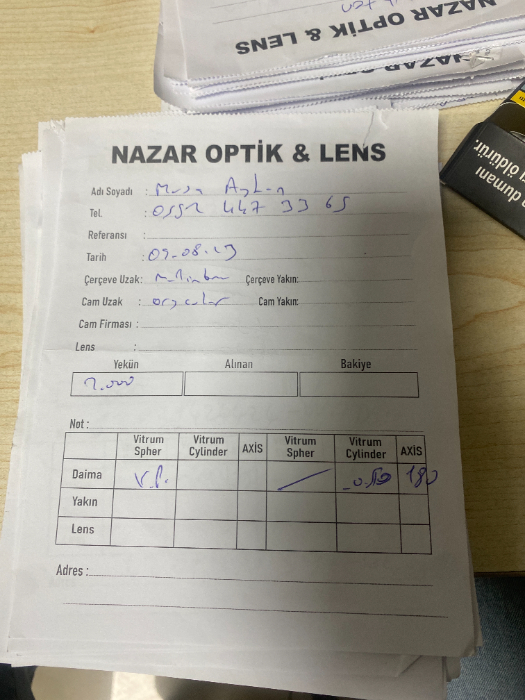 NAZAR OPTİK & LENS
NAZAR OPTİK & LENS
Adı Soyadı : Musa
Tel. : 0552 447 33 65
Referansı :
Tarih : 09-08-23
Çerçeve Uzak: Çerçeve Yakın:
Cam Uzak : Cam Yakın:
Cam Firması :
Lens :
Yekün Alınan Bakiye
Not :
Vitrum Spher Vitrum Cylinder AXİS Vitrum Spher Vitrum Cylinder AXİS
Daima V.P. -0.50 180
Yakın
Lens
Adres :
dumanı
öldürür.